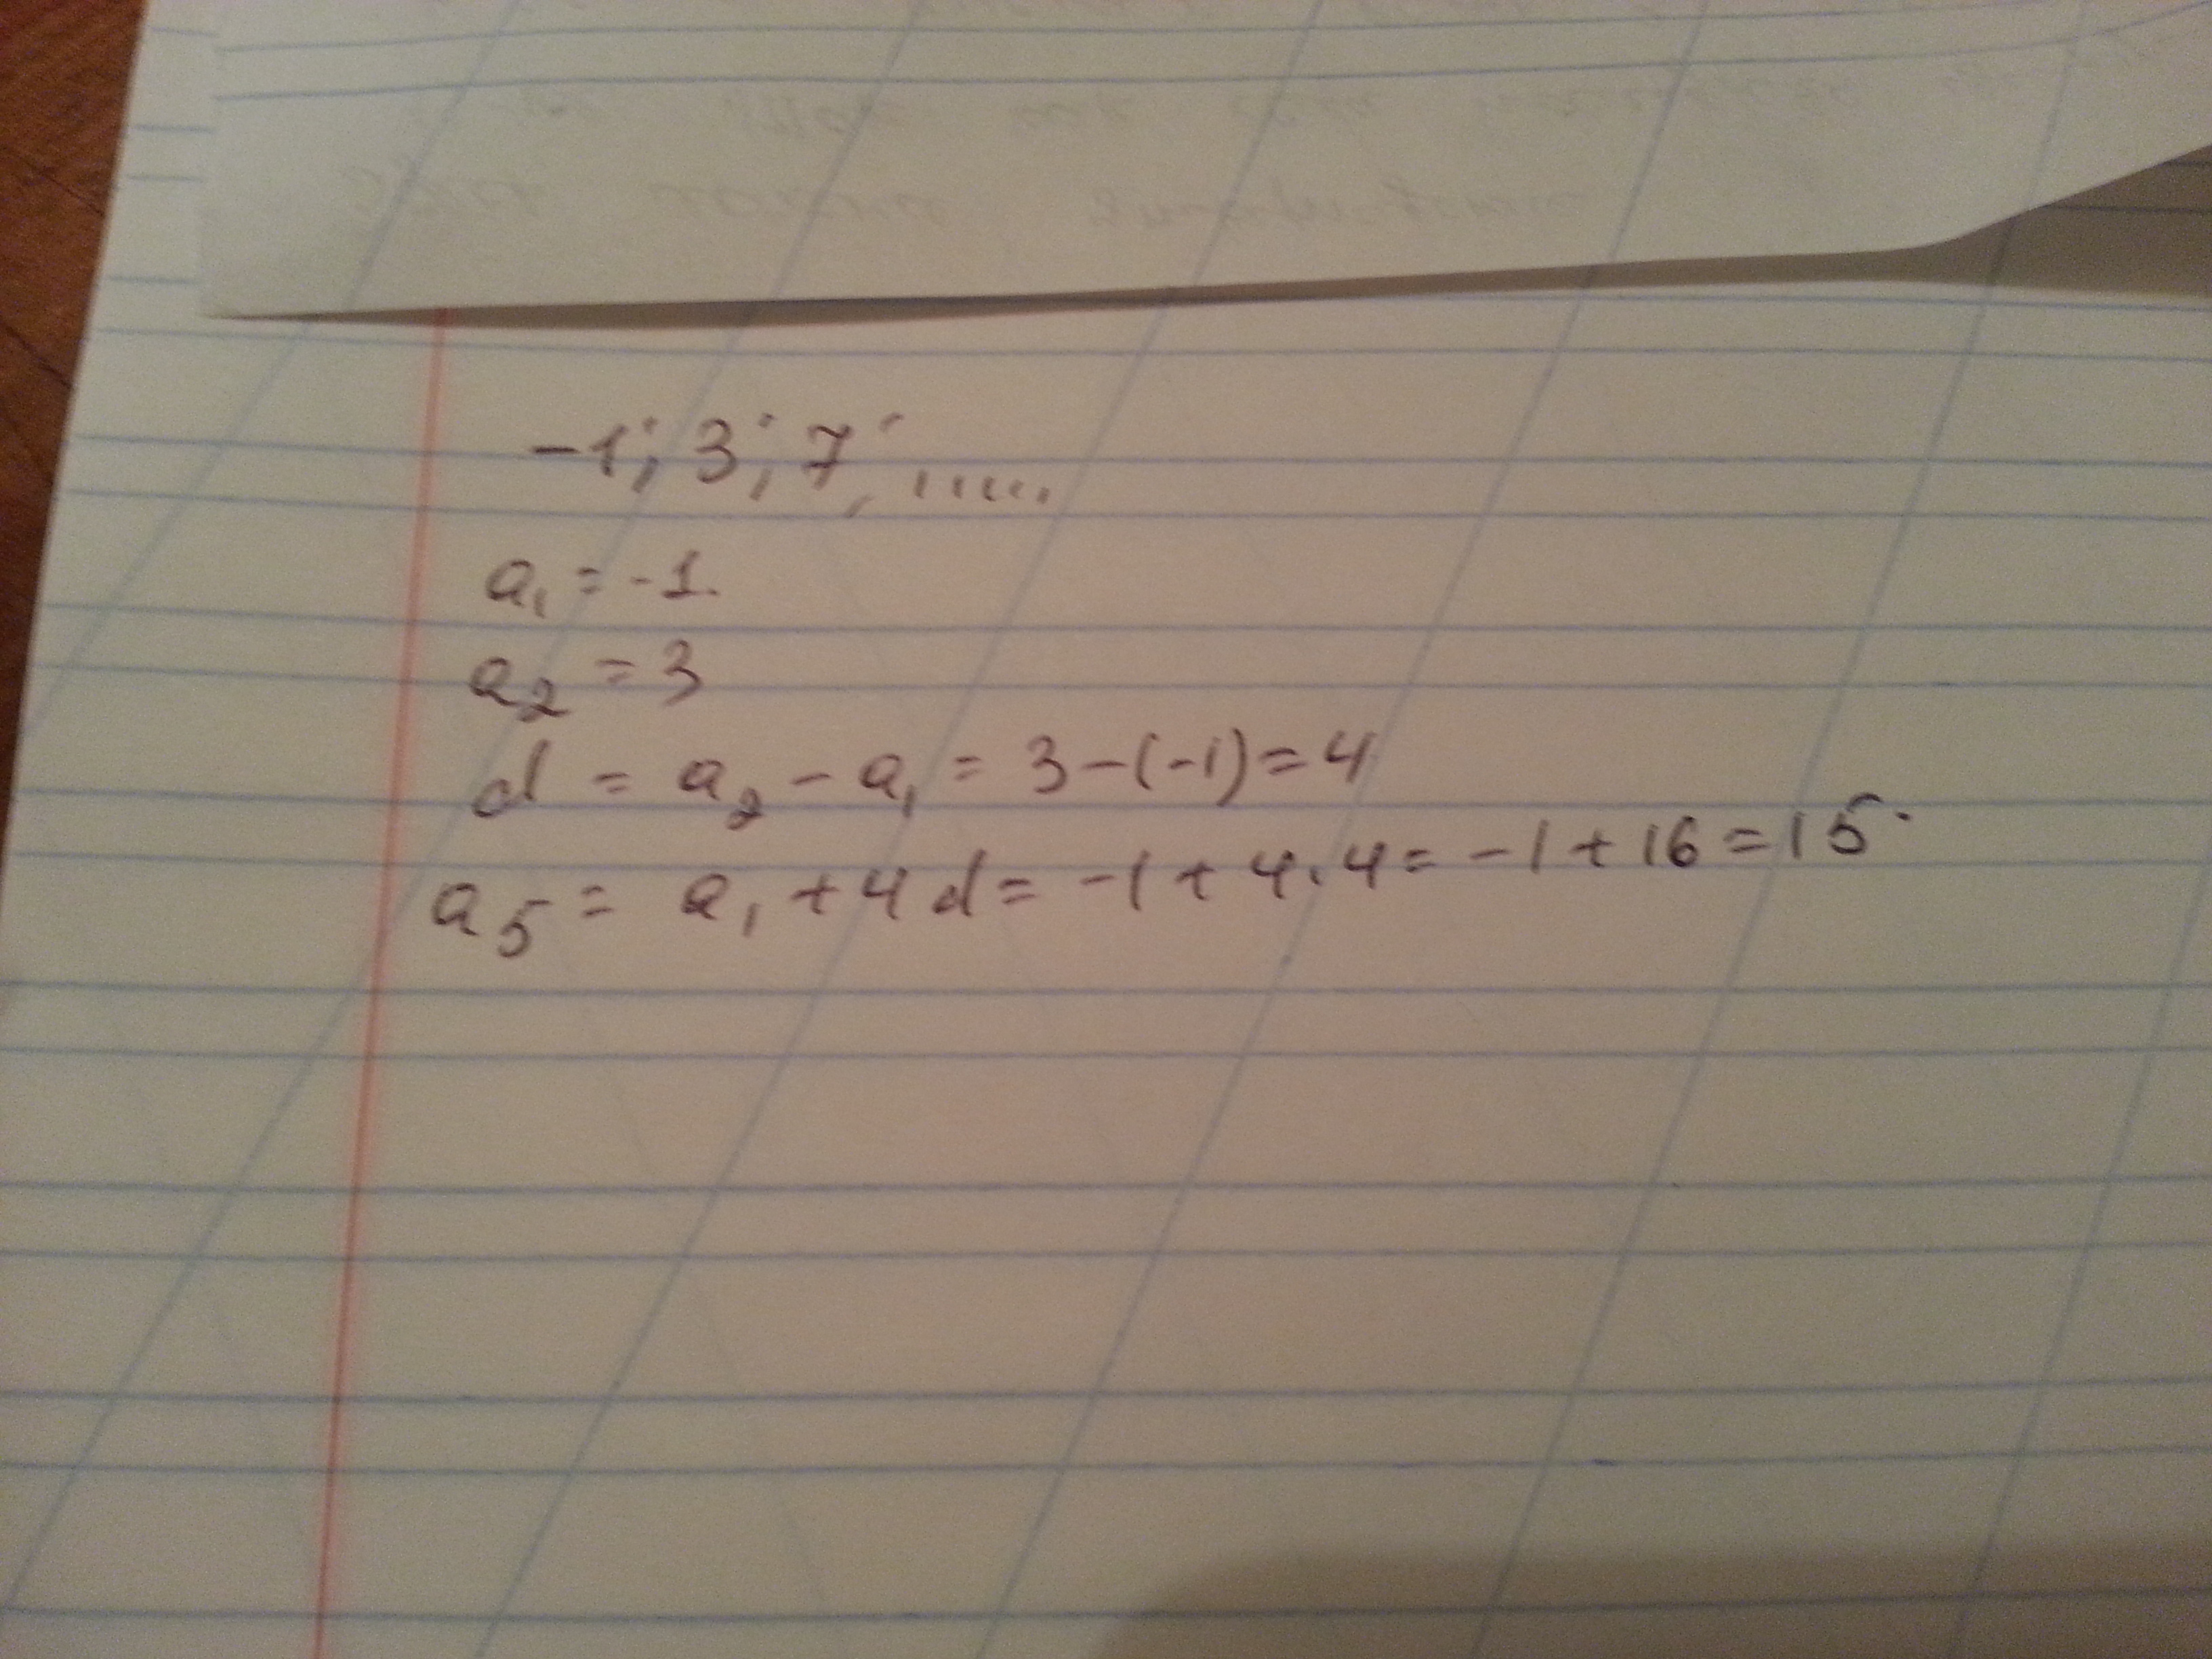 -1; 3; 7; ......
a₁ = -1.
a₂ = 3
d = a₂ - a₁ = 3-(-1)=4
a₅ = a₁ + 4d = -1 + 4·4 = -1 + 16 = 15.